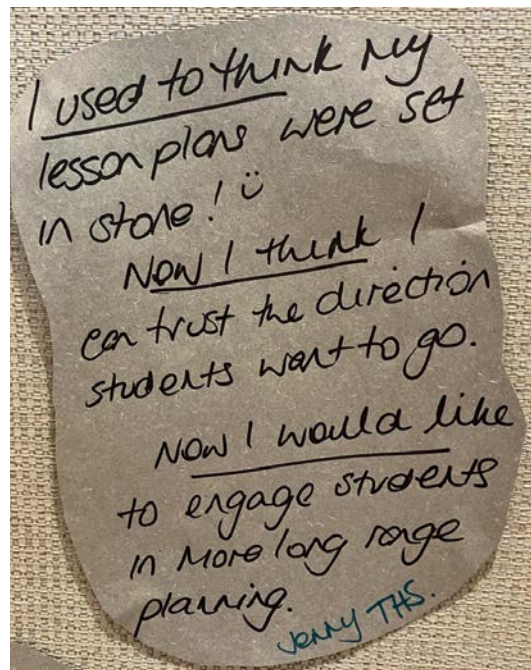 I used to think my
lesson plans were set
in stone! ü
Now I think I
can trust the direction
students want to go.
Now I would like
to engage students
in more long range
planning.
Jenny THS.